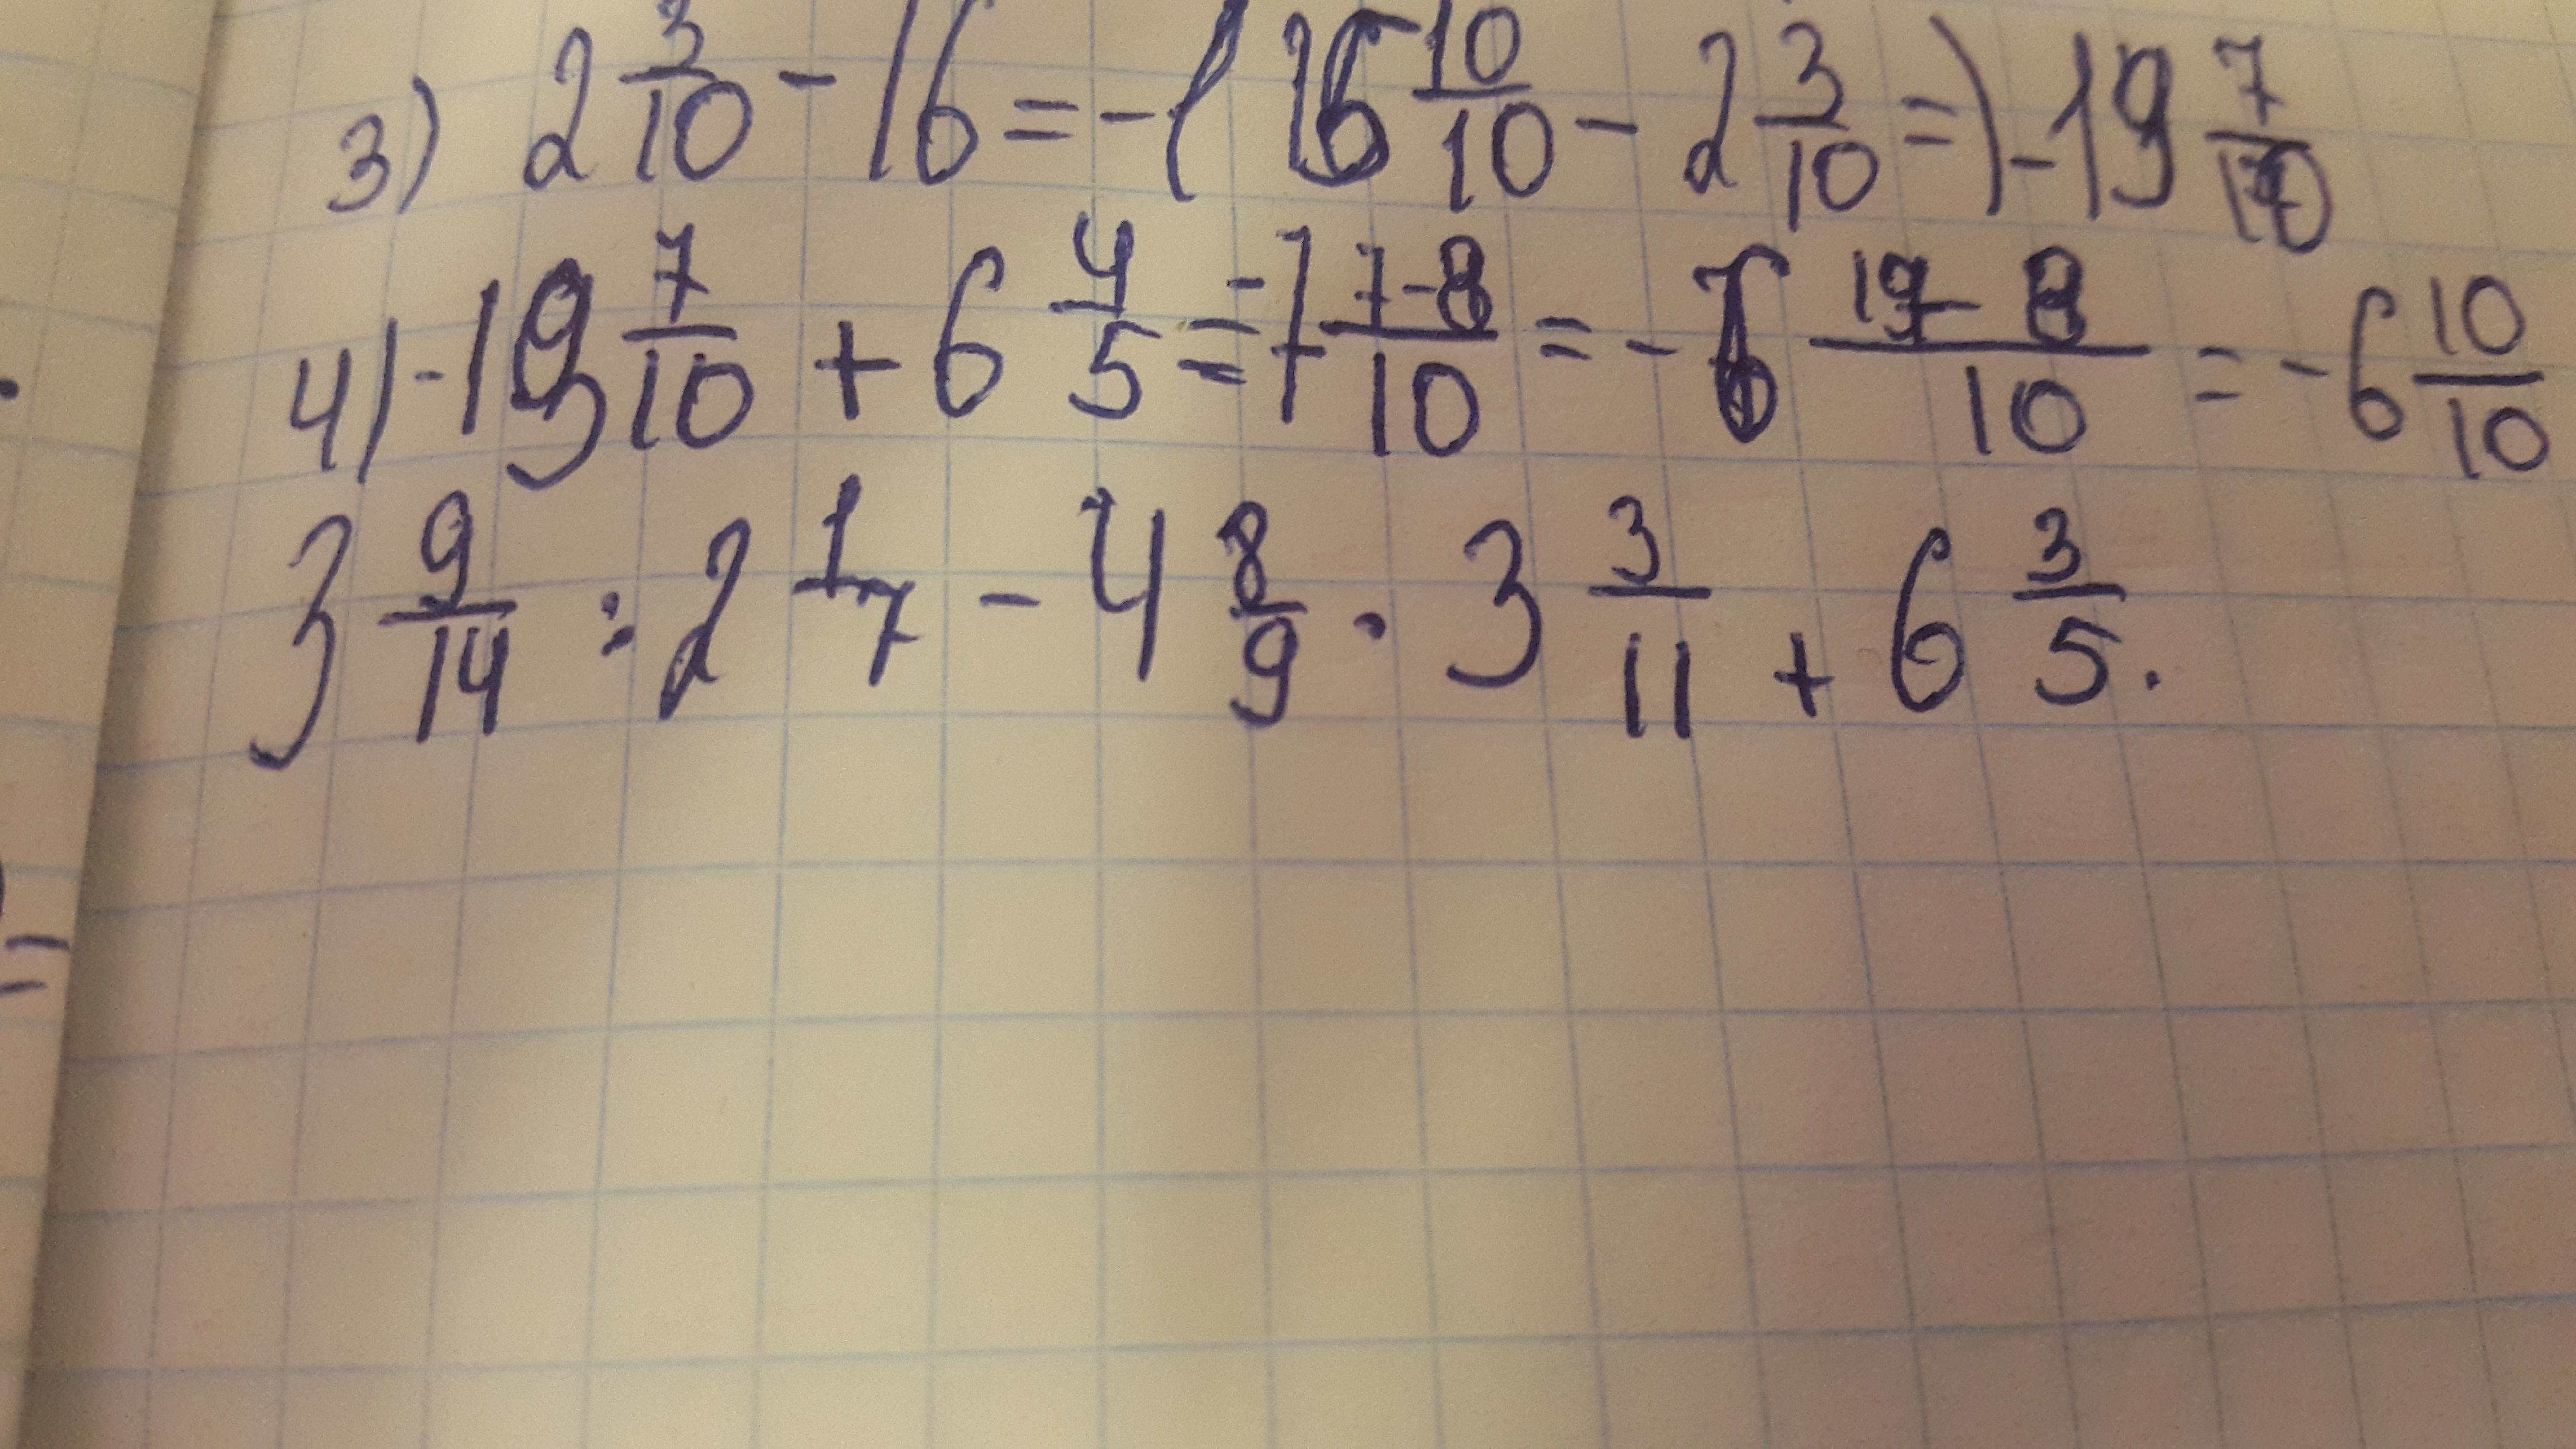 3) 2 3/10 - 16 = -( 15 10/10 - 2 3/10 = ) -13 7/10
4) -13 7/10 + 6 4/5 = -7 7-8/10 = - 6 17-8/10 = - 6 10/10
3 9/14 : 2 1/7 - 4 8/9 · 3 3/11 + 6 3/5.
=